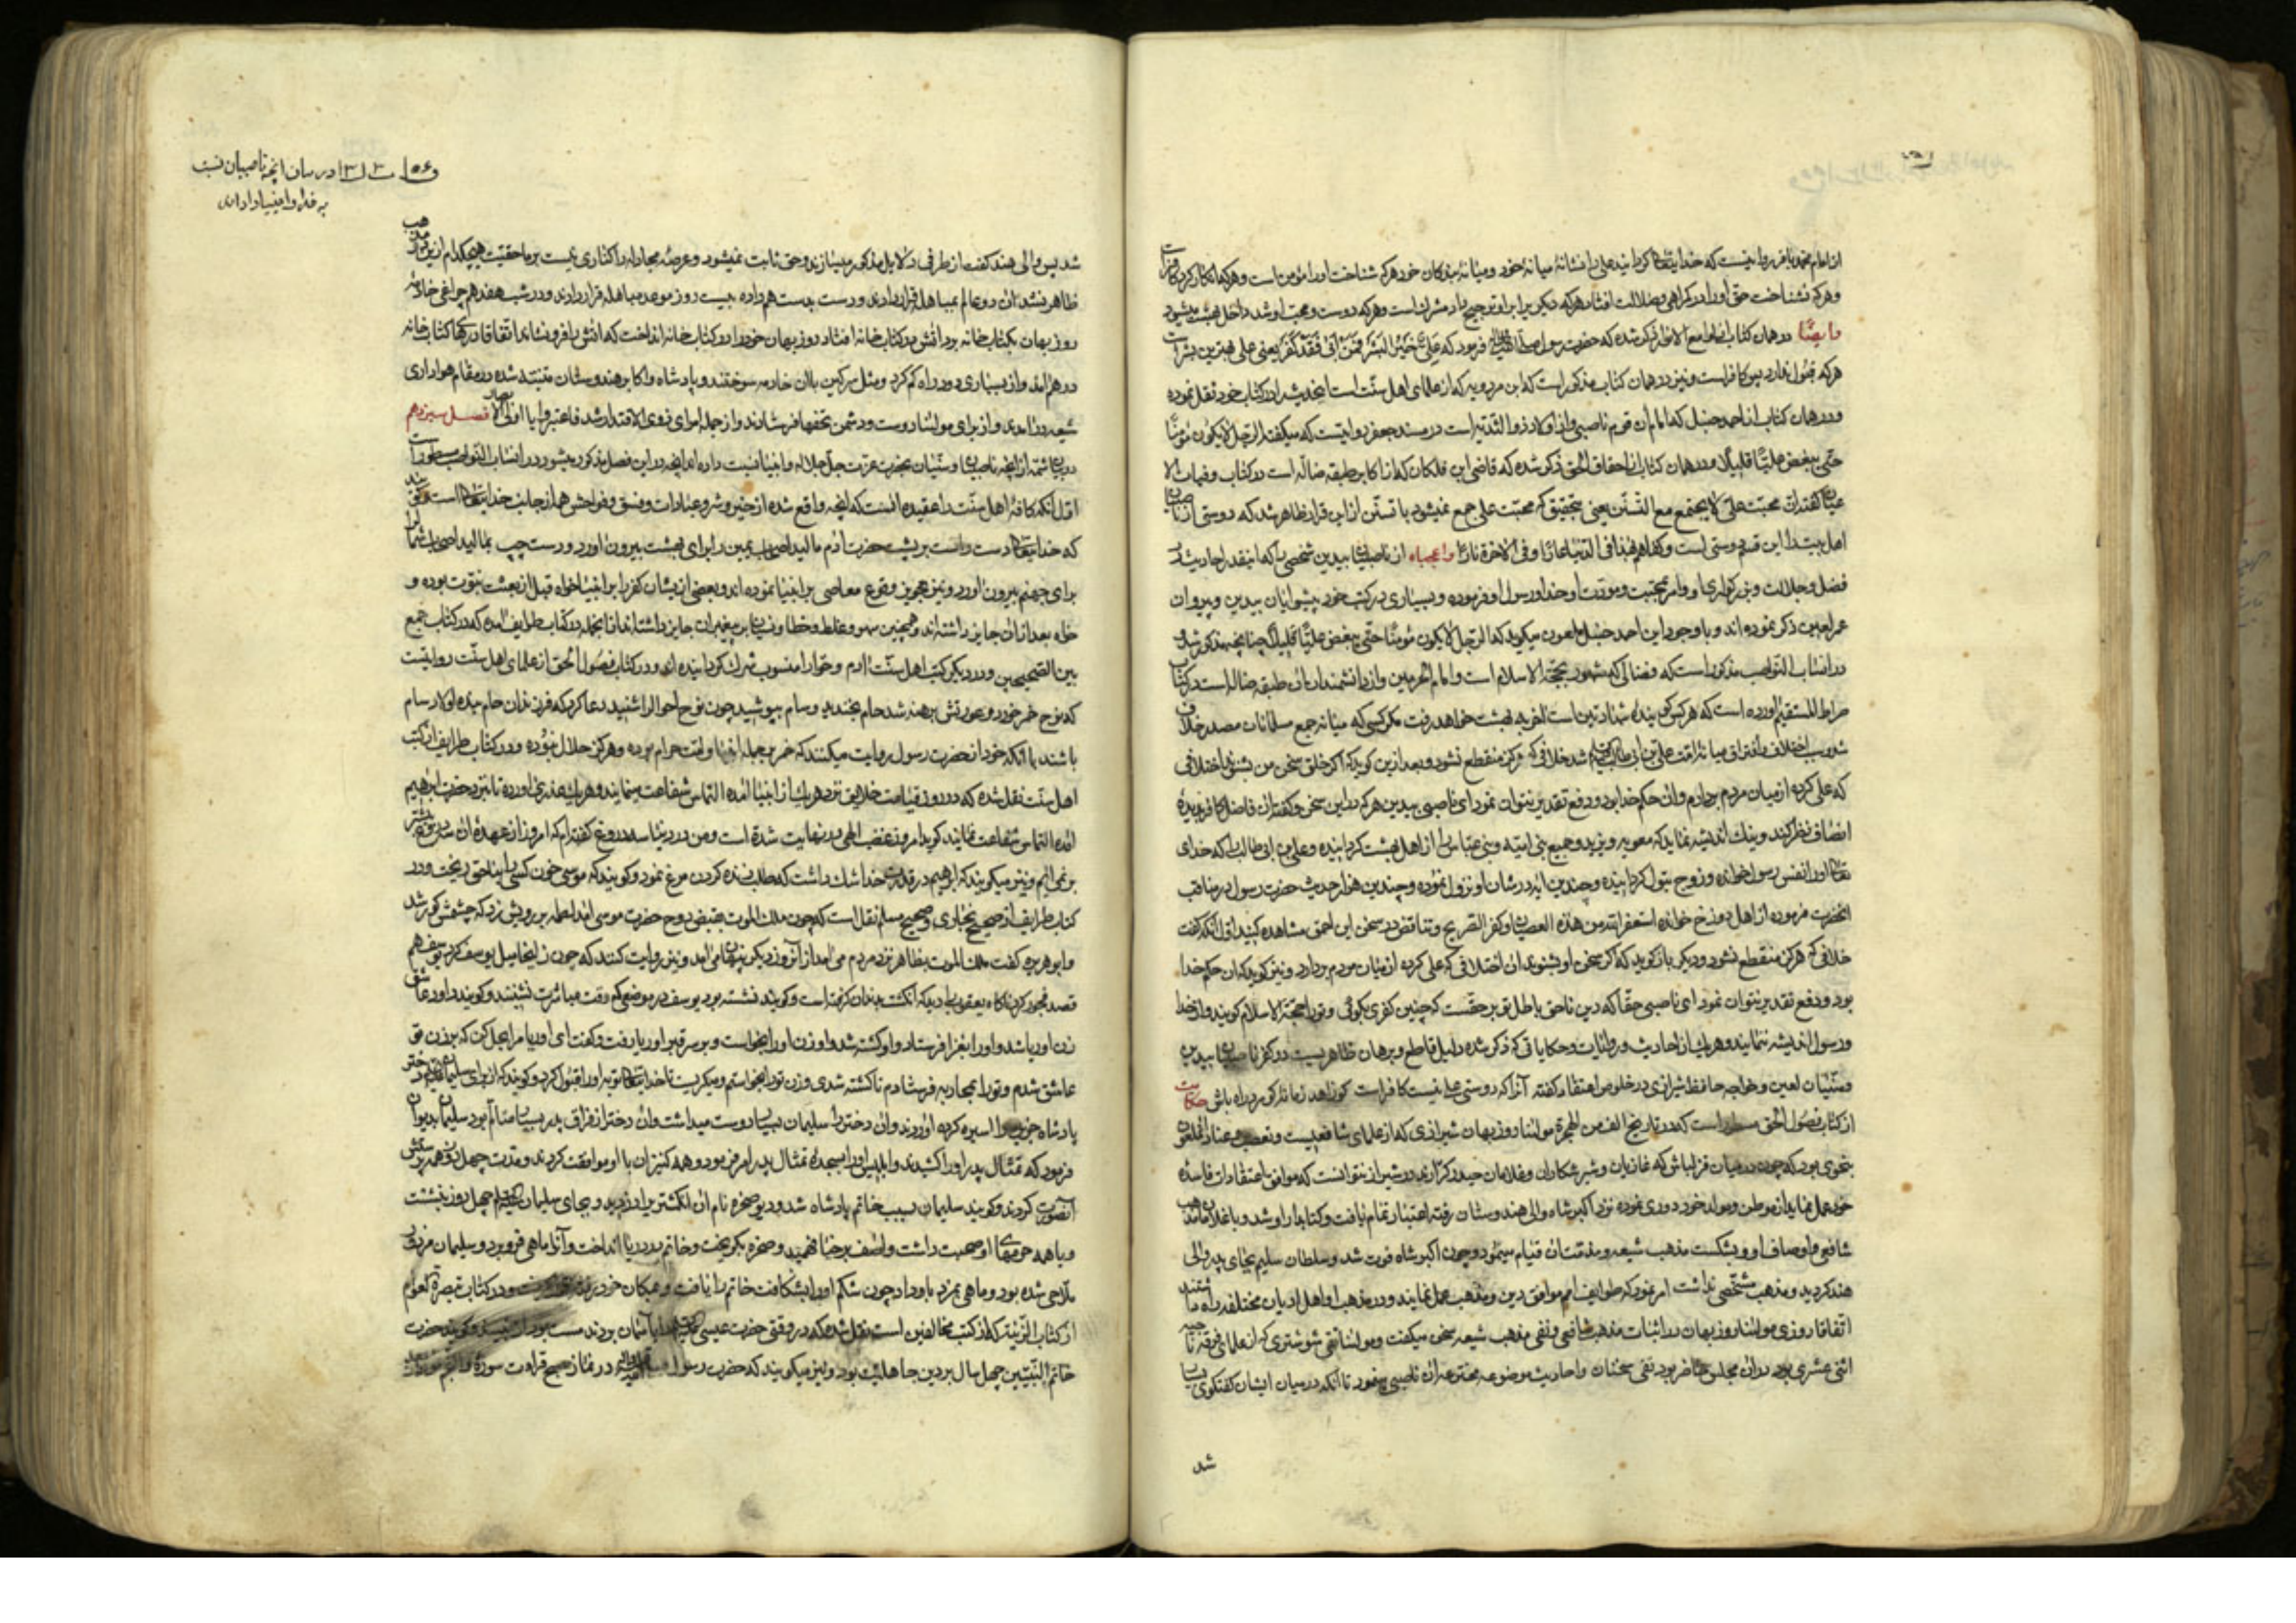 از امام محمد باقر روایتست که خدایتعالی گردانید علی را نشانهٔ میانهٔ خود و میانهٔ بندکان خود هرکه شناخت او را مؤمن است و هرکه انکار کرد کافر است
و هرکه نشناخت حق او را در کمراهی و ضلالت افتاد هرکه دیکری برابر او ترجیح داد مشرک است و هرکه دوست و محب او شد داخل بهشت میشود
و ایضًا در همان کتاب از جامع الاخبار ذکر شده که حضرت رسول صلی الله علیه و آله فرمود که علیٌ خیر البشر فمن ابی فقد کفر یعنی علی بهترین بشر است
هرکه قبول ندارد پس کافر است و نیز در همان کتاب مذکور است که ابن مردویه که از علمای اهل سنّت است اینحدیث را در کتاب خود نقل نموده
و در همان کتاب از احمد حنبل که امام آن قوم ناصبی و از اولاد ذو الثدیه است در مسند جعفر روایتست که میکفته الرجل لا یکون مؤمنًا
حتّی یبغض علیًّا قلیلًا و در همان کتاب از احقاق الحق ذکر شده که قاضی ابن خلکان که از اکابر طبقه ضالّه است در کتاب وفیات الا
عیان کفته انّ محبّت علیّ لا یجتمع مع التّسنّن یعنی بتحقیق که محبّت علی جمع نمیشود با تسنّن از این قرار ظاهر شد که دوستی ناصبیان
اهل بیت را این قسم دوستی است و کفاهم هذا فی الدنیا عارًا و فی الاخرة نارًا واعجباه از ناصبیان بیدین شخصی را که اینقدر احادیث در
فضل و جلالت و بزرکواری او و امر بمحبت و مودّت او خدا و رسول او فرموده و بسیاری در کتب خود پیشوایان بیدین و پیروان
عمر لعین ذکر نموده اند و با وجود این احمد حنبل ملعون میکوید که الرجل لا یکون مؤمنًا حتّی یبغض علیًّا قلیلًا چنانچه مذکور شد و
در انساب النواصب مذکور است که غزالی که مشهور بحجّة الاسلام است و امام الحرمین و از دانشمندان آن طبقه ضاله است در کتاب
صراط المستقیم آورده است که هرکس کویندهٔ شهادتین است آخر به بهشت خواهد رفت مکر کسی که میانه جمع مسلمانان مصدر خلاف
شود بسبب اختلاف و افتراق میانهٔ امّت علی بن ابی طالب شد خلافی که هرکز منقطع نشود و بعد از این کوید که اکر خلق سخن من بشنوند اختلافی
که علی کرده از میان مردم بردارم و آن حکم خدا بود و دفع تقدیر نتوان نمود ای ناصبی بیدین هرکه در این سخن و کفته آن فاضل کافر بدیدهٔ
انصاف نظر کند و نیک اندیشه نماید که معویه و یزید و جمیع بنی امیّه و بنی عبّاس را از اهل بهشت کردانیده و علی بن ابی طالب را که خدای
تعالی او را نفس رسول خوانده و زوج بتول کردانیده و چندین آیه در شان او نزول نموده و چندین هزار حدیث حضرت رسول در مناقب
آنحضرت فرموده از اهل دوزخ خوانده استغفر الله من هذه العصیان و کفر الصریح و تناقض در سخن این احمق مشاهده کنید اوّل آنکه کفت
خلافی که هرکز منقطع نشود و دیکر باز کوید که اکر سخن او بشنوند آن اختلافی که علی کرده از میان مردم بردارد و نیز کوید که آن حکم خدا
بود و دفع تقدیر نتوان نمود ای ناصبی حقّا که دین ناحق باطل تو بر حقّست که چنین کفری بکوئی و تو را حجّة الاسلام کویند و از خدا
و رسول اندیشه ننمایند و هریک از احادیث و روایات و حکایاتی که ذکر شده دلیل قاطع و برهان ظاهریست در کفر ناصبیان بیدین
و سنّیان لعین و خواجه حافظ شیرازی در خلوص اعتقاد کفته آنرا که دوستی علی نیست کافر است کو زاهد زمانه و کو شیخ راه باش حکایت
از کتاب فصول الحق مسطور است که در تاریخ الف من الهجرة مولانا روزبهان شیرازی که از علمای شافعیست و تعصب و عناد آن ملعون
بنحوی بود که چون در میان قزلباش که غازیان و شیر شکاران و غلامان حیدر کرّارند در شیراز نتوانست که موافق اعتقادات فاسدهٔ
خود عمل نماید از موطن و مولد خود دوری نموده نزد اکبر شاه والی هندوستان رفته اعتبار تمام یافت و کتابدار او شد و باغلاط مذهب
شافعی و اوصاف او و بشکست مذهب شیعه و مذمّت آن قیام مینمود و چون اکبر شاه فوت شد و سلطان سلیم بجای پدر والی
هند کردید و مذهب مشخّصی نداشت امر نمود که طوایف امم موافق دین و مذهب عمل نمایند و در مذهب او اهل ادیان مختلفه راه داشتند
اتفاقا روزی مولانا روزبهان در اثبات مذهب شافعی و نفی مذهب شیعه سخن میکفت و مولانا تقی شوشتری که از علمای فرقه ناجیه
اثنی عشری بود در آن مجلس حاضر بود نفی سخنان و احادیث موضوعه مخترعه آن ناصبی مینمود تا آنکه در میان ایشان کفتکوی بسیار
شد
در بیان آنچه ناصبیان نسبت
به خدا و انبیا داده اند
شد پس والی هند کفت از طرفی دلایل مذکور میسازند و حق ثابت نمیشود و عرصهٔ مجادله را کناری نیست بر ما حقیّت هیچکدام از این دو مذهب
ظاهر نشد آن دو عالم بمباهله قرار دادند و دست بدست هم داده بیست روز موعد مباهله قرار دادند و در شب هفدهم چراغی خادمهٔ
روزبهان بکتابخانه برد آتش در کتابخانه افتاد روزبهان خود را در کتابخانه انداخت که آتش را فرو نشاند اتفاقا در کتابخانه
در هم آمد و از بسیاری دود راه کم کرد و مثل سرکین با آن خادمه سوختند و پادشاه و اکابر هندوستان متنبّه شده در مقام هواداری
شیعه در آمدند و از برای مولانا دوست و دشمن تحفها فرستادند و از جمله امرای ذوی الاقتدار شد فاعتبروا یا اولی الابصار فصل سیزدهم
در بیان شمّه از آنچه ناصبیان و سنّیان بحضرت عزّت جلّ جلاله و انبیا نسبت داده اند آنچه در این فصل مذکور میشود در انساب النواصب مسطور است
اوّل آنکه کافهٔ اهل سنّت را عقیده آنست که آنچه واقع شده از خیر و شر و عبادات و فسق و فواحش همه از جانب خدایتعالی است
که خدایتعالی دست راست بر پشت حضرت آدم مالید اصحاب یمین را برای بهشت بیرون آورد و دست چپ بمالید اصحاب شمال را
برای جهنم بیرون آورد و نیز تجویز وقوع معاصی بر انبیا نموده اند و بعضی از ایشان کفر را بر انبیا خواه قبل از بعثت نبوّت بوده و
خواه بعد از آن جایز داشته اند و همچنین سهو و غلط و خطا و نسیان بر پیغمبران جایز داشته اند از آنجمله در کتاب طرایف آمده که در کتاب جمع
بین الصّحیحین و در دیکر کتب اهل سنّت آدم و حوّا را منسوب بشرک کردانیده اند و در کتاب فصول الحق از علمای اهل سنّت روایتست
که نوح خمر خورد و عورتش برهنه شد حام بخندید و سام بپوشید چون نوح احوال را شنید دعا کرد که فرزندان حام بندهٔ اولاد سام
باشند با آنکه خود از حضرت رسول روایت میکنند که خمر بر جمله انبیا و امّت حرام بوده و هرکز حلال نبوده و در کتاب طرایف از کتب
اهل سنّت نقل شده که در روز قیامت خلایق نزد هریک از انبیا آمده التماس شفاعت مینمایند و هریک عذری آورده تا نزد حضرت ابرهیم
آمده التماس شفاعت نمایند کوید امروز غضب الهی در نهایت شده است و من در دنیا سه دروغ کفته ام که امروز از عهدهٔ آن
بر نمی آیم و نیز میکویند که ابرهیم در قدرت خدا شک داشت که طلب زنده کردن مرغ نمود و کویند که موسی خون کسی را بناحق ریخت و در
کتاب طرایف از صحیح بخاری و صحیح مسلم نقل است که چون ملک الموت بقبض روح حضرت موسی آمد لطمه بر رویش زد که چشمش کور شد
و ابو هریره کفت ملک الموت بظاهر نزد مردم می آمد از آنروز دیکر پنهان می آمد و نیز روایت کنند که چون زلیخا میل یوسف کرد یوسف هم
قصد فجور کرد ناکاه یعقوب را دید که انکشت بدندان کرفته است و کویند نشسته بود یوسف در موضعی که وقت مباشرت نشینند و کویند داود عاشق
زن اوریا شد و او را بغزا فرستاد و او کشته شد و او زن او را بخواست و بر سر قبر اوریا رفت و کفت ای اوریا مرا بحل کن که بر زن تو
عاشق شدم و تو را بمحاربه فرستادم تا کشته شدی و زن تو را بخواستم و میکریست تا خدایتعالی توبه او را قبول کرد و کویند که از برای سلیمان دختر
پادشاه جزیره را اسیر کرده آوردند و آن دختر را سلیمان بسیار دوست میداشت و آن دختر از فراق پدر بسیار متالّم بود سلیمان بدیوان
فرمود که تمثال پدر او را کشیدند و ابلیس او را بسجدهٔ تمثال پدر امر فرمود و همه کنیزان با او موافقت کردند و مدّت چهل روز
آنصورت کردند و کویند سلیمان بسبب خاتم پادشاه شد و دیو صخره نام آن انکشتر را دزدید و بجای سلیمان چهل روز بنشست
و با همه حرمهای او صحبت داشت و آصف برخیا فهمید و صخره بکریخت و خاتم در دریا انداخت و آنرا ماهی فرو برد و سلیمان مزدور
ملّاحی شده بود و ماهی بمزد باو داد چون شکم او را بشکافت خاتم را یافت و بمکان خود رفت و در کتاب تبصرة العوام
از کتاب الزینة که از کتب مخالفین است نقل شده که در وقتی حضرت عیسی را بآسمان بردند مست بود و کویند حضرت
خاتم النّبیّین چهل سال بر دین جاهلیت بود و نیز میکویند که حضرت رسول در نماز صبح قراءت سورهٔ والنجم